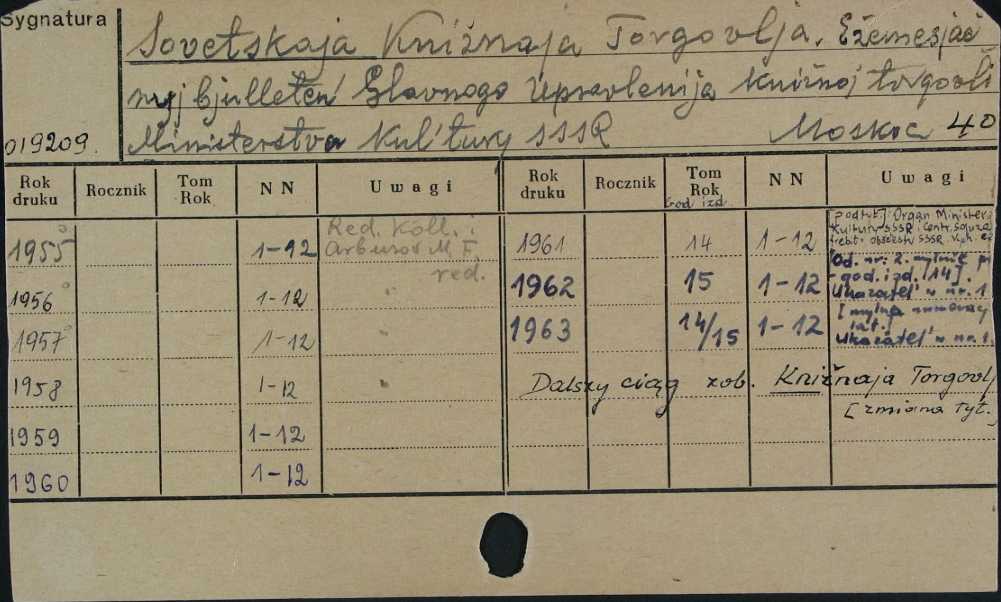 Sygnatura
Sovetskaja Knižnaja Torgovlja. Ežemesjač
nyj bjulleten' Glavnogo Upravlenija knižnoj torgovli
019209. Ministerstva Kul'tury SSSR Moskva 40
Rok druku Rocznik Tom Rok NN Uwagi Rok druku Rocznik Tom Rok God izd. NN Uwagi
1955 1-12 Red. Koll. i
Arbuzov M. F.
red.
1956 1-12
1957 1-12
1958 1-12
1959 1-12
1960 1-12
1961 14 1-12 [podtyt.] Organ Minister.
Kul'tury SSSR i Centr. Sojuza
1962 15 1-12 Od. nr. 2. mylnie
god. izd. [14].
Ukazatel' w nr. 1.
1963 14/15 1-12 [mylna
lat.]
Ukazatel' w nr. 1.
Dalszy ciąg zob. Knižnaja Torgovlj
[zmiana tyt.